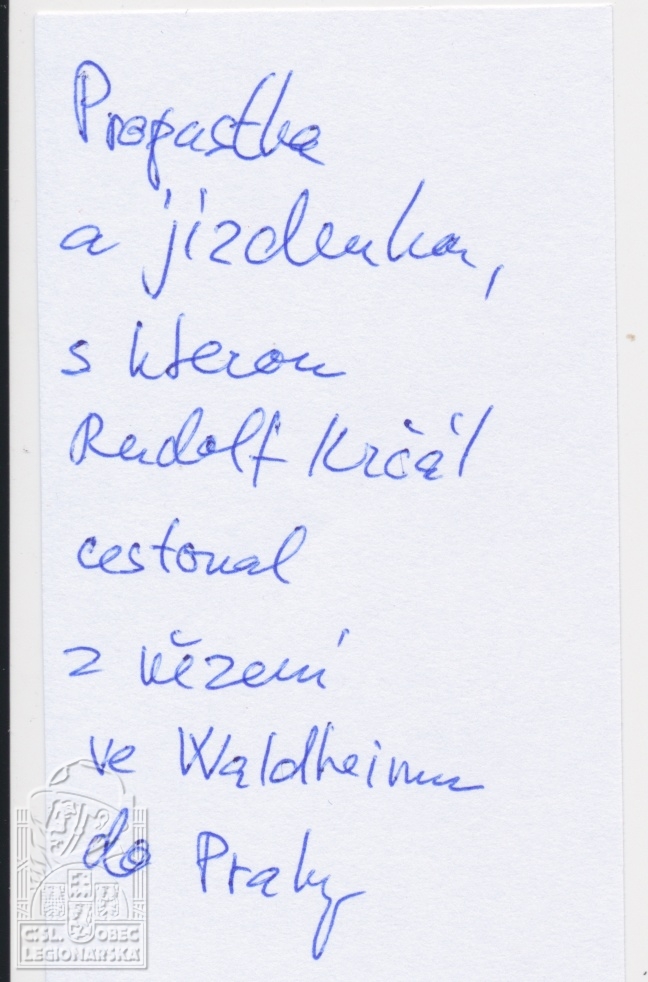 Propustka
a jízdenka,
s kterou
Rudolf Krčál
cestoval
z vězení
ve Waldheimu
do Prahy
ČSL. OBEC
LEGIONÁŘSKÁ